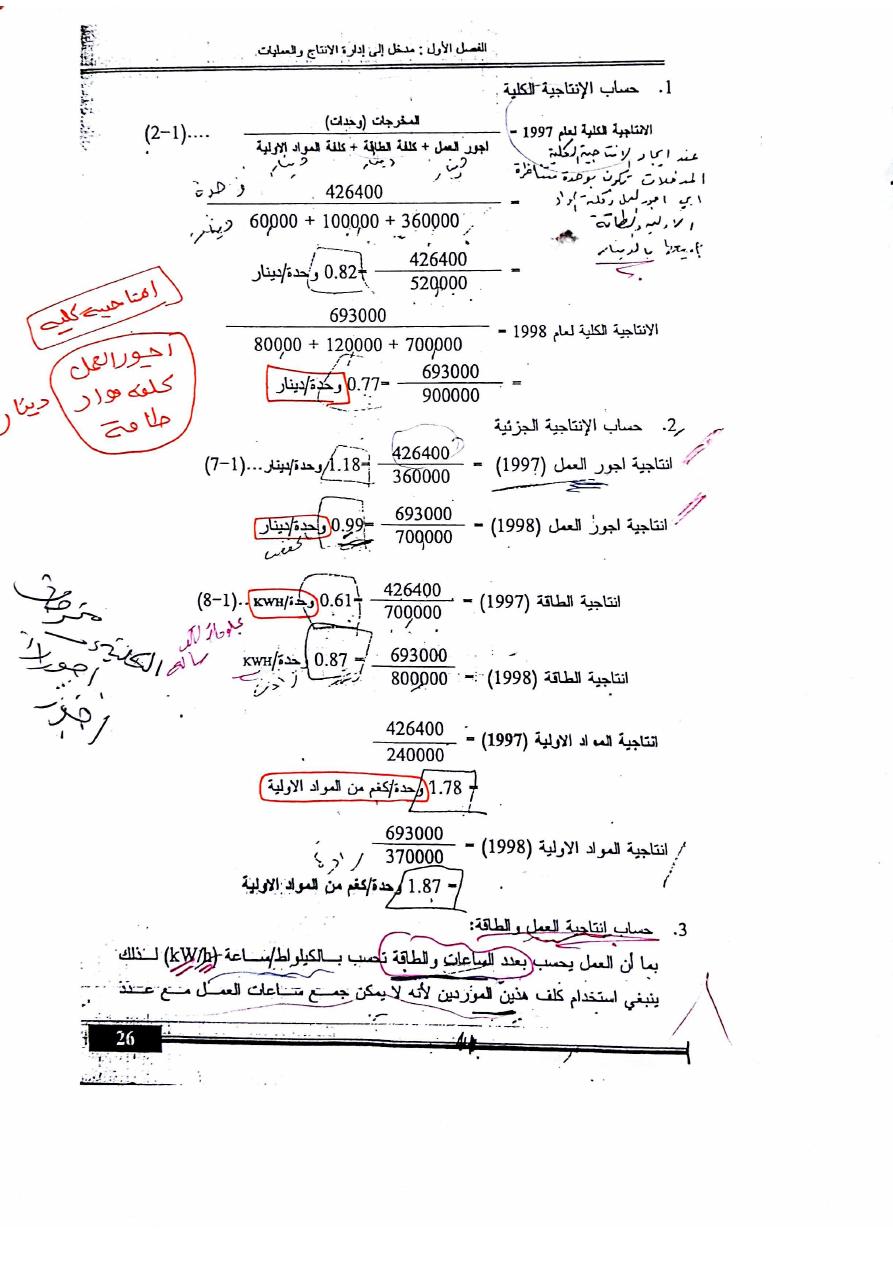 الفصل الأول : مدخل إلى إدارة الانتاج والعمليات.
1. حساب الإنتاجية الكلية
الانتاجية الكلية لعام 1997 =
المخرجات (وحدات)
اجور العمل + كلفة الطاقة + كلفة المواد الاولية
....(2-1)
دينار دينار دينار
عند ايجاد الانتاجية الكلية
المدخلات تكون بوحدة متناظرة
الاولية والطاقة
بالدينار
= 426400 وحدة
60000 + 100000 + 360000 دينار
= 426400
520000
=0.82 وحدة/دينار
انتاجية كلية
اجور العمل
كلفة مواد
طاقة
دينار
الانتاجية الكلية لعام 1998 =
693000
80000 + 120000 + 700000
= 693000
900000
=0.77 وحدة/دينار
2. حساب الإنتاجية الجزئية
انتاجية اجور العمل (1997) =
426400
360000
=1.18 وحدة/دينار...(7-1)
انتاجية اجور العمل (1998) =
693000
700000
=0.99 وحدة/دينار
انتاجية الطاقة (1997) =
426400
700000
=0.61 وحدة/KWH..(8-1)
انتاجية الطاقة (1998) =
693000
800000
= 0.87 وحدة/KWH
انتاجية المواد الاولية (1997) =
426400
240000
=1.78 وحدة/كغم من المواد الاولية
انتاجية المواد الاولية (1998) =
693000
370000
=1.87 وحدة/كغم من المواد الاولية
3. حساب إنتاجية العمل والطاقة:
بما أن العمل يحسب بعدد الساعات والطاقة تحسب بالكيلواط/ساعة (kW/h) لذلك
ينبغي استخدام كلف هذين الموردين لأنه لا يمكن جمع ساعات العمل مع عدد
26